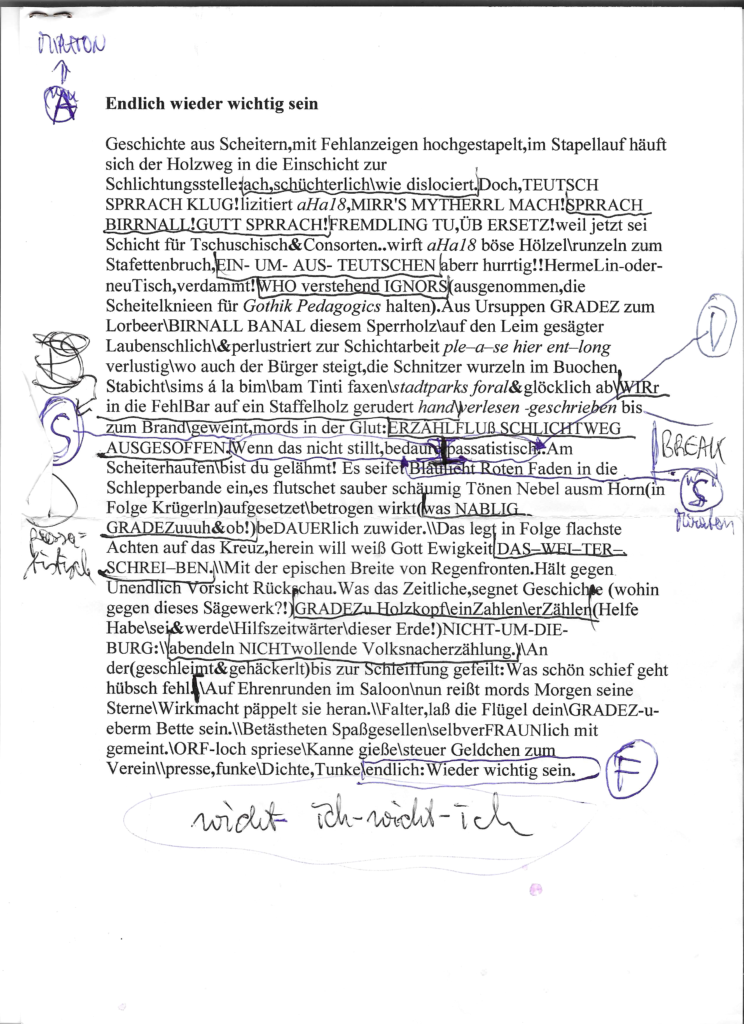 MIRATON
A
Endlich wieder wichtig sein
Geschichte aus Scheitern,mit Fehlanzeigen hochgestapelt,im Stapellauf häuft
sich der Holzweg in die Einschicht zur
Schlichtungsstelle:ach,schüchterlich\wie dislociert.Doch,TEUTSCH
SPRRACH KLUG!lizitiert aHa18,MIRR'S MYTHERRL MACH!SPRRACH
BIRRNALL!GUTT SPRRACH!FREMDLING TU,ÜB ERSETZ!weil jetzt sei
Schicht für Tschuschisch&Consorten..wirft aHa18 böse Hölzel\runzeln zum
Stafettenbruch,EIN- UM- AUS- TEUTSCHEN aberr hurrtig!!HermeLin-oder-
neuTisch,verdammt!WHO verstehend IGNORS(ausgenommen,die
Scheitelknieen für Gothik Pedagogics halten).Aus Ursuppen GRADEZ zum
Lorbeer\BIRNALL BANAL diesem Sperrholz\auf den Leim gesägter
Laubenschlich\&perlustriert zur Schichtarbeit ple–a–se hier ent–long
verlustig\wo auch der Bürger steigt,die Schnitzer wurzeln im Buochen
D
Stabicht\sims á la bim\bam Tinti faxen\stadtparks foral&glöcklich ab\WIRr
in die FehlBar auf ein Staffelholz gerudert hand\verlesen -geschrieben bis
S
zum Brand\geweint,mords in der Glut:ERZÄHLFLUß SCHLICHTWEG
AUSGESOFFEN.Wenn das nicht stillt,bedaur passatistisch:Am
BREAK
Scheiterhaufen\bist du gelähmt! Es seifet Blaulicht Roten Faden in die
S
Schlepperbande ein,es flutschet sauber schäumig Tönen Nebel ausm Horn(in
Folge Krügerln)aufgesetzt\betrogen wirkt(was NABLIG
Miraton
GRADEZuuuh&ob!)beDAUERlich zuwider.\\Das legt in Folge flachste
passa-
tistisch
Achten auf das Kreuz,herein will weiß Gott Ewigkeit DAS–WEI–TER–
SCHREI–BEN.\\Mit der epischen Breite von Regenfronten.Hält gegen
Unendlich Vorsicht Rückschau.Was das Zeitliche,segnet Geschichte (wohin
gegen dieses Sägewerk?!)GRADEZu Holzkopf\einZahlen\erZählen(Helfe
Habe\sei&werde\Hilfszeitwärter\dieser Erde!)NICHT-UM-DIE-
BURG:\\abendeln NICHTwollende Volksnacherzählung.\An
der(geschleimt&gehäckerlt)bis zur Schleiffung gefeilt:Was schön schief geht
hübsch fehl.\\Auf Ehrenrunden im Saloon\nun reißt mords Morgen seine
Sterne\Wirkmacht päppelt sie heran.\\Falter,laß die Flügel dein\GRADEZ-u-
eberm Bette sein.\\Betästheten Spaßgesellen\selbverFRAUNlich mit
gemeint.\ORF-loch spriese\Kanne gieße\steuer Geldchen zum
Verein\\presse,funke\Dichte,Tunke\endlich:Wieder wichtig sein.
F
wicht- ich-wicht-ich